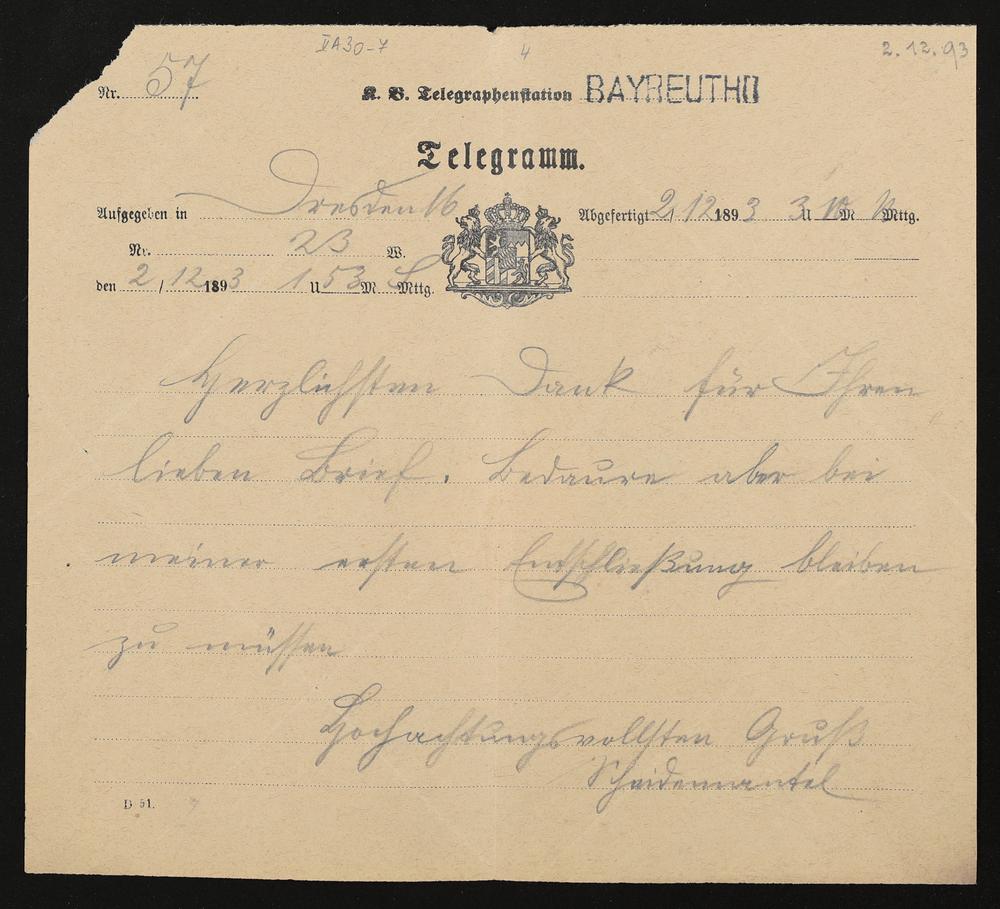 II A 30-7 4 2.12.93
Nr. 57 K. B. Telegraphenstation BAYREUTH
Telegramm.
Aufgegeben in Dresden 16 Abgefertigt 2/12 1893 3 U 10 M N Mttg.
Nr. 23 W.
den 2/12 1893 1 U 53 M Mttg.
Herzlichsten Dank für Ihren
lieben Brief. Bedaure aber bei
meiner ersten Entschließung bleiben
zu müssen
Hochachtungsvollsten Gruß
Scheidemantel
D 51.